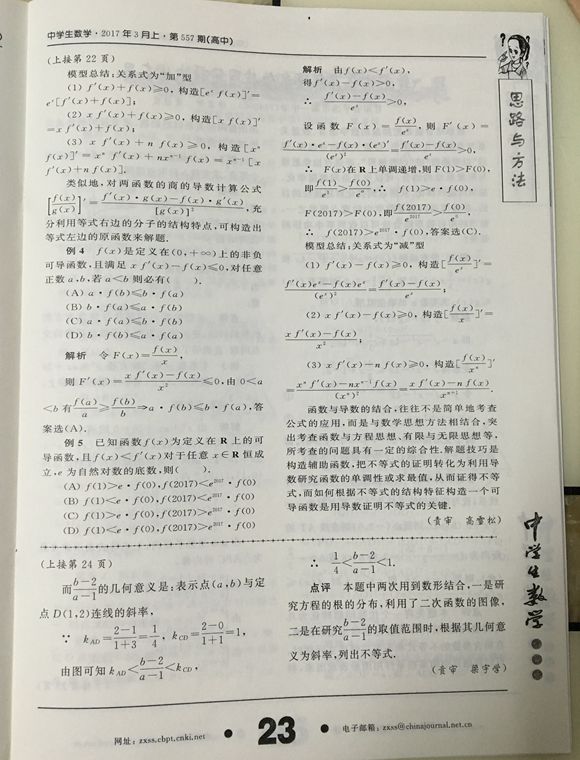 中学生数学·2017年3月上·第557期(高中)
(上接第22页)
模型总结:关系式为“加”型
(1) f′(x)+f(x)≥0, 构造[eˣ f(x)]′=
eˣ[f′(x)+f(x)];
(2) x f′(x)+f(x)≥0, 构造[x f(x)]′
=x f′(x)+f(x);
(3) x f′(x)+n f(x)≥0, 构造[xⁿ
f(x)]′=xⁿ f′(x)+nxⁿ⁻¹ f(x)=xⁿ⁻¹[x
f′(x)+n f(x)].
类似地,对两函数的商的导数计算公式
[f(x)/g(x)]′=(f′(x)·g(x)−f(x)·g′(x))/[g(x)]², 充
分利用等式右边的分子的结构特点,可构造出
等式左边的原函数来解题.
例4 f(x)是定义在(0,+∞)上的非负
可导函数,且满足 x f′(x)−f(x)≤0,对任意
正数a,b,若a<b则必有( ).
(A) a·f(b)≤b·f(a)
(B) b·f(a)≤a·f(b)
(C) a·f(a)≤b·f(b)
(D) b·f(b)≤a·f(a)
解析 令F(x)=f(x)/x,
则F′(x)=(x f′(x)−f(x))/x²≤0,由0<a
<b有f(a)/a≥f(b)/b⇒a·f(b)≤b·f(a),答
案选(A).
例5 已知函数f(x)为定义在R上的可
导函数,且f(x)<f′(x)对于任意x∈R恒成
立,e为自然对数的底数,则( ).
(A) f(1)>e·f(0),f(2017)<e²⁰¹⁷·f(0)
(B) f(1)<e·f(0),f(2017)<e²⁰¹⁷·f(0)
(C) f(1)>e·f(0),f(2017)>e²⁰¹⁷·f(0)
(D) f(1)<e·f(0),f(2017)>e²⁰¹⁷·f(0)
解析 由f(x)<f′(x),
得f′(x)−f(x)>0,
∴ (f′(x)−f(x))/eˣ>0,
设函数F(x)=f(x)/eˣ, 则F′(x)=
(f′(x)·eˣ−f(x)·(eˣ)′)/(eˣ)²=(f′(x)−f(x))/eˣ>0,
∴ F(x)在R上单调递增,则F(1)>F(0),
即f(1)/e¹>f(0)/e⁰,∴ f(1)>e·f(0),
F(2017)>F(0),即f(2017)/e²⁰¹⁷>f(0)/e⁰,
∴ f(2017)>e²⁰¹⁷·f(0),答案选(C).
模型总结:关系式为“减”型
(1) f′(x)−f(x)≥0, 构造[f(x)/eˣ]′=
(f′(x)eˣ−f(x)eˣ)/(eˣ)²=(f′(x)−f(x))/eˣ;
(2) x f′(x)−f(x)≥0, 构造[f(x)/x]′=
(x f′(x)−f(x))/x²;
(3) x f′(x)−n f(x)≥0, 构造[f(x)/xⁿ]′
=(xⁿ f′(x)−nxⁿ⁻¹f(x))/(xⁿ)²=(x f′(x)−n f(x))/xⁿ⁺¹.
函数与导数的结合,往往不是简单地考查
公式的应用,而是与数学思想方法相结合,突
出考查函数与方程思想、有限与无限思想等,
所考查的问题具有一定的综合性.解题技巧是
构造辅助函数,把不等式的证明转化为利用导
数研究函数的单调性或求最值,从而证得不等
式,而如何根据不等式的结构特征构造一个可
导函数是用导数证明不等式的关键.
(责审 高雪松)
(上接第24页)
而(b−2)/(a−1)的几何意义是:表示点(a,b)与定
点D(1,2)连线的斜率,
∵ k_AD=(2−1)/(1+3)=1/4, k_CD=(2−0)/(1+1)=1,
由图可知k_AD<(b−2)/(a−1)<k_CD,
∴ 1/4<(b−2)/(a−1)<1.
点评 本题中两次用到数形结合,一是研
究方程的根的分布,利用了二次函数的图像,
二是在研究(b−2)/(a−1)的取值范围时,根据其几何意
义为斜率,列出不等式.
(责审 梁宇学)
思路与方法
中学生数学
网址: zxss.cbpt.cnki.net
23
电子邮箱: zxss@chinajournal.net.cn